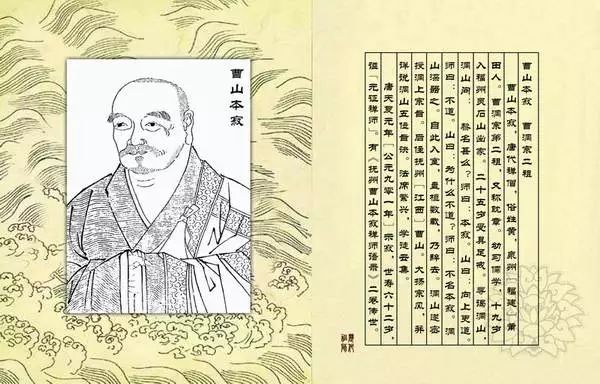 曹山本寂
曹山本寂　曹洞宗二祖
曹山本寂，唐代禅僧，俗姓黄，泉州［福建］莆
田人。曹洞宗第二祖，又称耽章。幼习儒学，十九岁
入福州灵石山出家。二十五岁受具足戒。寻谒洞山，
洞山问：　黎名甚么？师曰：本寂。山曰：向上更道。
师曰：不道。山曰：为什么不道？师曰：不名本寂。洞
山深器之。自此入室，盘桓数载，乃辞去。洞山遂密
授洞上宗旨。后住抚州［江西］曹山，大扬宗风，并
详说洞山五位旨诀。法席繁兴，学徒云集。
唐天复元年［公元九零一年］示寂，世寿六十二岁，
谥「元证禅师」。有《抚州曹山本寂禅师语录》二卷传世。